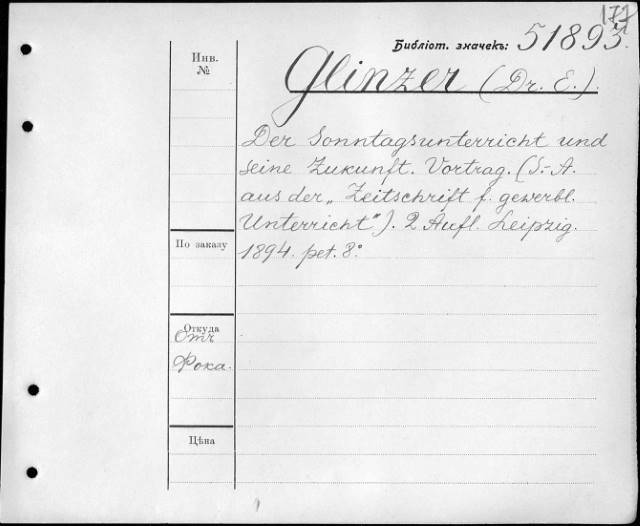 177
Библіот. значекъ: 51893.
Инв.
№
Glinzer (Dr. E.).
Der Sonntagsunterricht und
seine Zukunft. Vortrag. (S.-A.
aus der „Zeitschrift f. gewerbl.
Unterricht"). 2 Aufl. Leipzig.
1894. pet. 8°
По заказу
Откуда
Отъ
Фока.
Цѣна